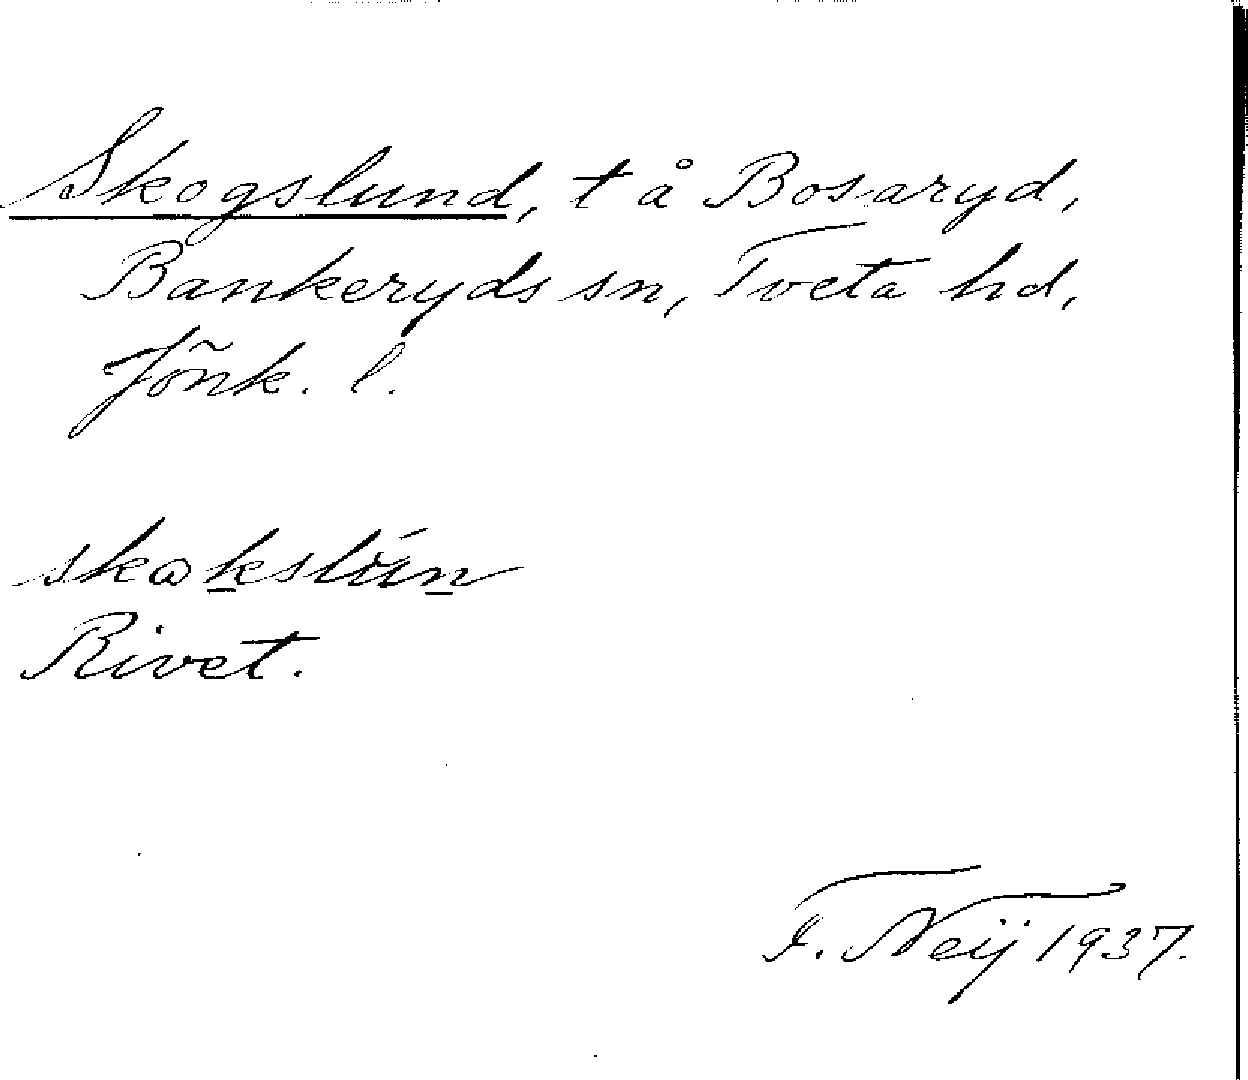 Skogslund, t å Bosaryd,
Bankeryds sn, Tveta hd,
Jönk. l.
Rivet.
F. Neij 1937.